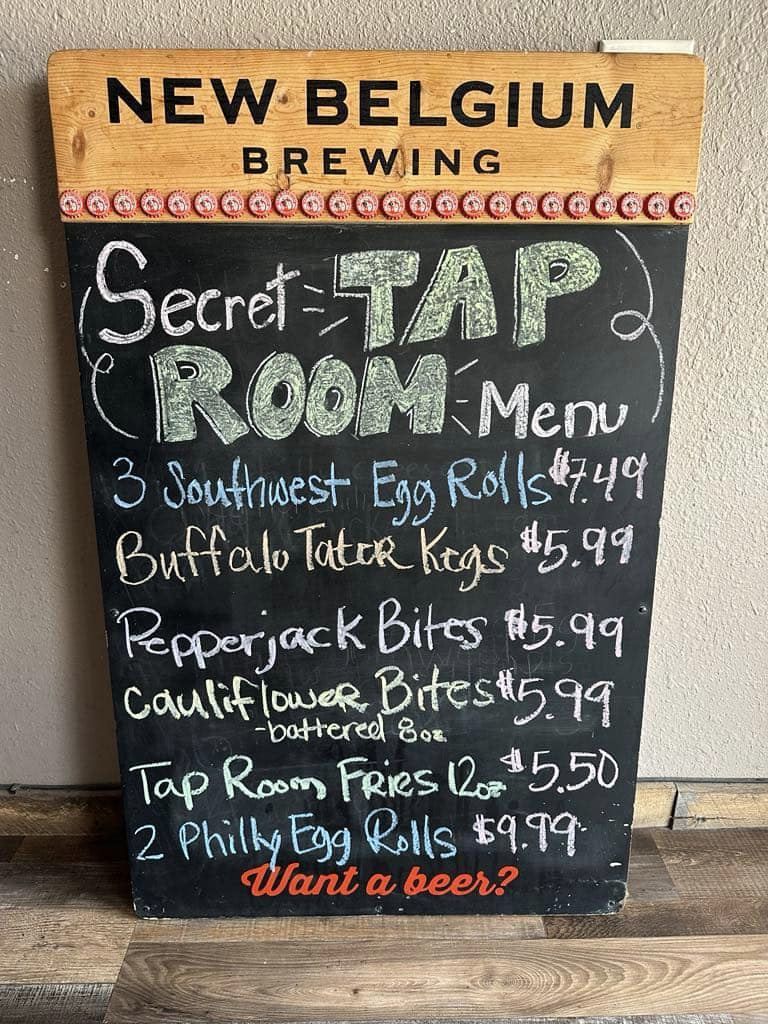 NEW BELGIUM
BREWING
Secret TAP
ROOM Menu
3 Southwest Egg Rolls $7.49
Buffalo Tator Kegs $5.99
Pepperjack Bites $5.99
Cauliflower Bites $5.99
-battered 8oz
Tap Room Fries 12oz $5.50
2 Philly Egg Rolls $9.99
Want a beer?